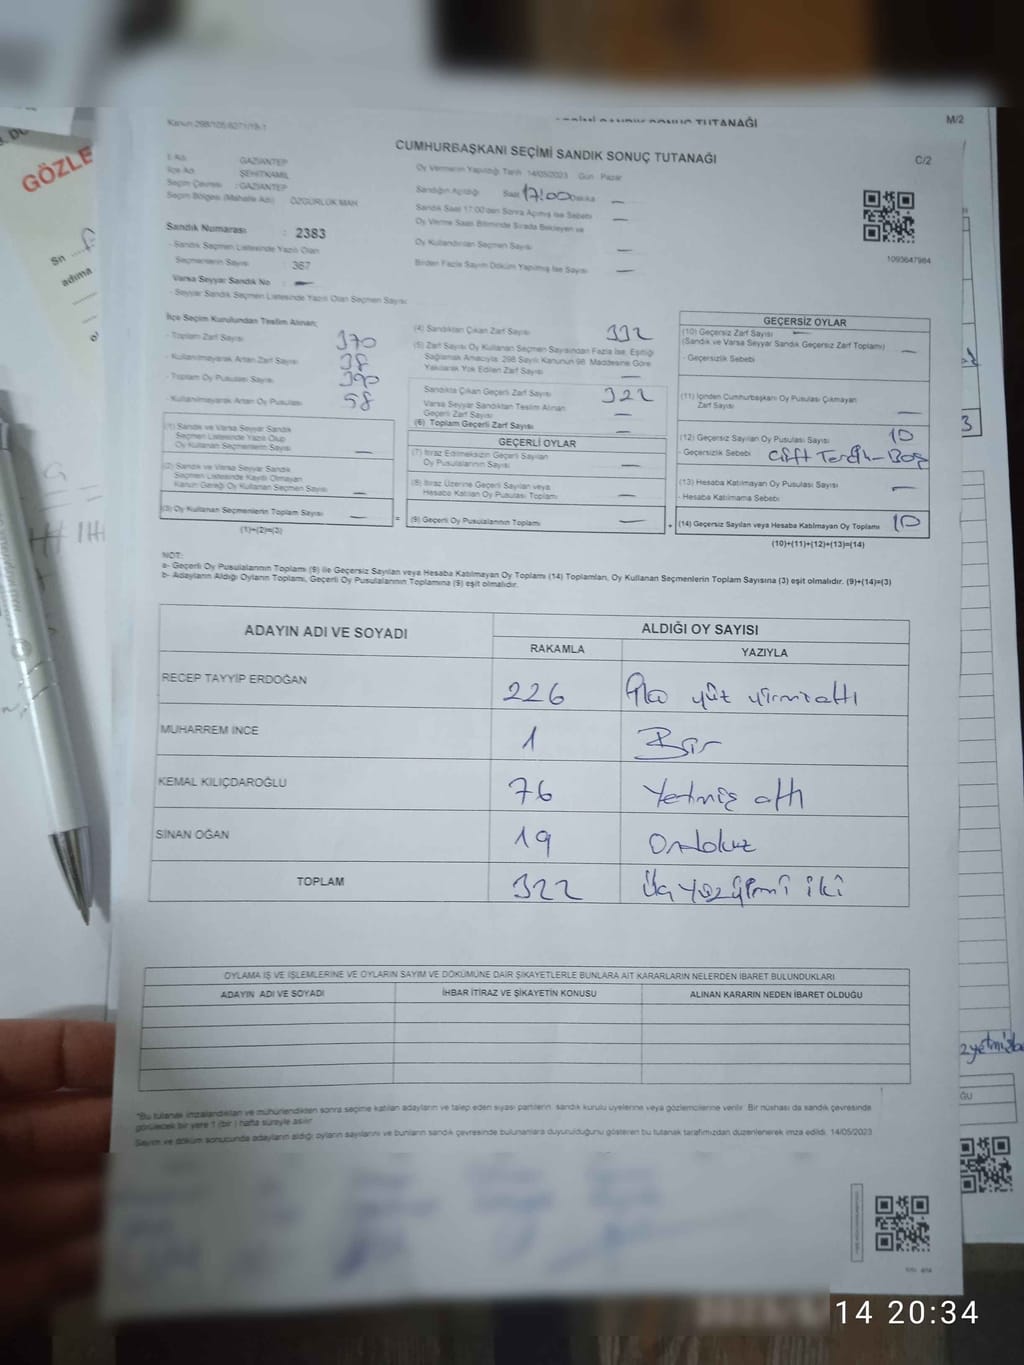 SONUÇ TUTANAĞI
M/2
Kanun 298/105,6271/19-1
CUMHURBAŞKANI SEÇİMİ SANDIK SONUÇ TUTANAĞI
C/2
İl Adı GAZİANTEP
İlçe Adı ŞEHİTKAMİL
Seçim Çevresi : GAZİANTEP
Seçim Bölgesi (Mahalle Adı) ÖZGÜRLÜK MAH
Oy Vermenin Yapıldığı Tarih 14/05/2023 Gün Pazar
Sandığın Açıldığı Saat 17:00 Dakika —
Sandık Saat 17:00'den Sonra Açılmış İse Sebebi —
Oy Verme Saati Bitiminde Sırada Bekleyen ve
Oy Kullandırılan Seçmen Sayısı —
Birden Fazla Sayım Döküm Yapılmış İse Sayısı —
1093647984
Sandık Numarası : 2383
- Sandık Seçmen Listesinde Yazılı Olan
Seçmenlerin Sayısı : 367
Varsa Seyyar Sandık No : —
- Seyyar Sandık Seçmen Listesinde Yazılı Olan Seçmen Sayısı
İlçe Seçim Kurulundan Teslim Alınan;
- Toplam Zarf Sayısı 370
- Kullanılmayarak Artan Zarf Sayısı 38
- Toplam Oy Pusulası Sayısı 390
- Kullanılmayarak Artan Oy Pusulası 58
(1) Sandık ve Varsa Seyyar Sandık
Seçmen Listesinde Yazılı Olup
Oy Kullanan Seçmenlerin Sayısı —
(2) Sandık ve Varsa Seyyar Sandık
Seçmen Listesinde Kayıtlı Olmayan
Kanun Gereği Oy Kullanan Seçmen Sayısı —
(3) Oy Kullanan Seçmenlerin Toplam Sayısı —
(1)+(2)=(3)
(4) Sandıktan Çıkan Zarf Sayısı 332
(5) Zarf Sayısı Oy Kullanan Seçmen Sayısından Fazla İse, Eşitliği
Sağlamak Amacıyla; 298 Sayılı Kanunun 98. Maddesine Göre
Yakılarak Yok Edilen Zarf Sayısı —
Sandıkta Çıkan Geçerli Zarf Sayısı 322
Varsa Seyyar Sandıktan Teslim Alınan
Geçerli Zarf Sayısı —
(6) Toplam Geçerli Zarf Sayısı —
GEÇERLİ OYLAR
(7) İtiraz Edilmeksizin Geçerli Sayılan
Oy Pusulalarının Sayısı —
(8) İtiraz Üzerine Geçerli Sayılan veya
Hesaba Katılan Oy Pusulası Toplamı —
= (9) Geçerli Oy Pusulalarının Toplamı —
GEÇERSİZ OYLAR
(10) Geçersiz Zarf Sayısı —
(Sandık ve Varsa Seyyar Sandık Geçersiz Zarf Toplamı) —
- Geçersizlik Sebebi
(11) İçinden Cumhurbaşkanı Oy Pusulası Çıkmayan
Zarf Sayısı —
(12) Geçersiz Sayılan Oy Pusulası Sayısı 10
- Geçersizlik Sebebi Çift Tercih-Boş
(13) Hesaba Katılmayan Oy Pusulası Sayısı —
- Hesaba Katılmama Sebebi
+ (14) Geçersiz Sayılan veya Hesaba Katılmayan Oy Toplamı 10
(10)+(11)+(12)+(13)=(14)
NOT:
a- Geçerli Oy Pusulalarının Toplamı (9) ile Geçersiz Sayılan veya Hesaba Katılmayan Oy Toplamı (14) Toplamları, Oy Kullanan Seçmenlerin Toplam Sayısına (3) eşit olmalıdır. (9)+(14)=(3)
b- Adayların Aldığı Oyların Toplamı, Geçerli Oy Pusulalarının Toplamına (9) eşit olmalıdır.
ADAYIN ADI VE SOYADI ALDIĞI OY SAYISI
RAKAMLA YAZIYLA
RECEP TAYYİP ERDOĞAN 226 yüz yirmi altı
MUHARREM İNCE 1 Bir
KEMAL KILIÇDAROĞLU 76 Yetmiş altı
SİNAN OĞAN 19 Ondokuz
TOPLAM 322 Üç yüz yirmi iki
OYLAMA İŞ VE İŞLEMLERİNE VE OYLARIN SAYIM VE DÖKÜMÜNE DAİR ŞİKAYETLERLE BUNLARA AİT KARARLARIN NELERDEN İBARET BULUNDUKLARI
ADAYIN ADI VE SOYADI İHBAR İTİRAZ VE ŞİKAYETİN KONUSU ALINAN KARARIN NEDEN İBARET OLDUĞU
"Bu tutanak imzalandıktan ve mühürlendikten sonra seçime katılan adayların ve talep eden siyasi partilerin, sandık kurulu üyelerine veya gözlemcilerine verilir. Bir nüshası da sandık çevresinde
görülecek bir yere 1 (bir ) hafta süreyle asılır
Sayım ve döküm sonucunda adayların aldığı oyların sayılarını ve bunların sandık çevresinde bulunanlara duyurulduğunu gösteren bu tutanak tarafımızdan düzenlenerek imza edildi. 14/05/2023
GÖZLE
Sn
adıma
3
ĞU
14 20:34